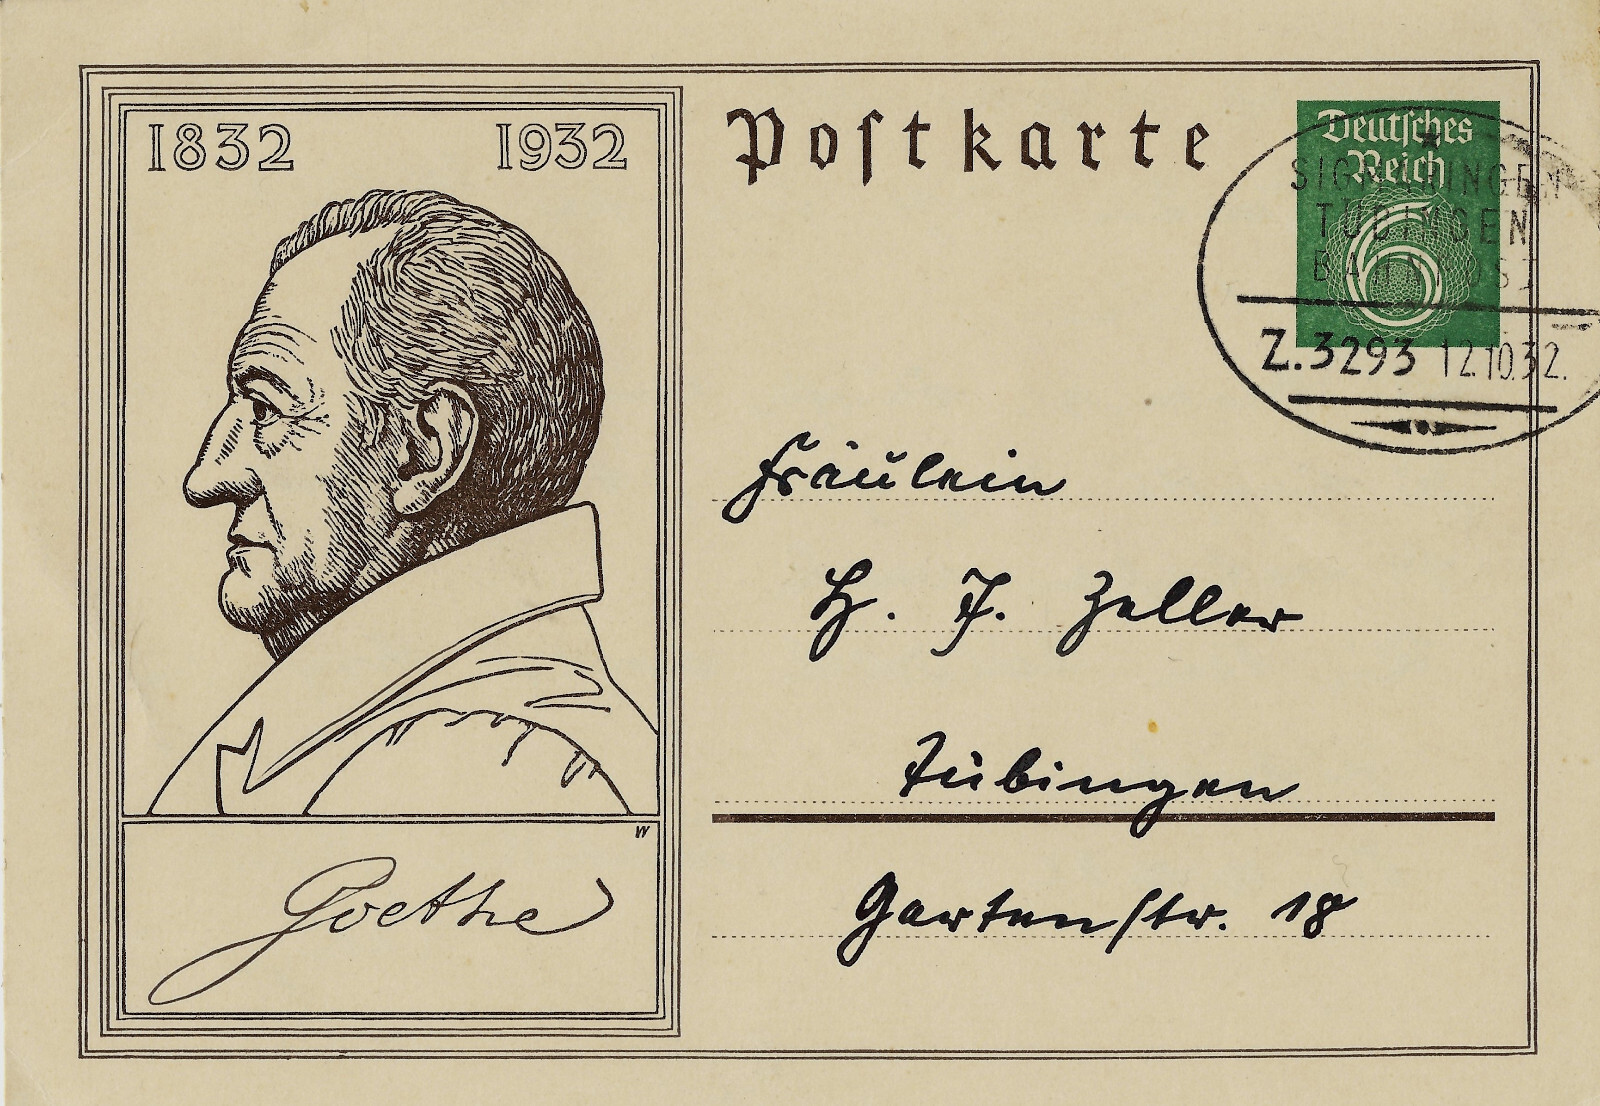 1832 1932
Postkarte
Deutsches
Reich
6
SIGMARINGEN
TÜBINGEN
BAHNPOST
Z.3293 12.10.32.
Fräulein
H. J. Zeller
Tübingen
Gartenstr. 18
W
Goethe